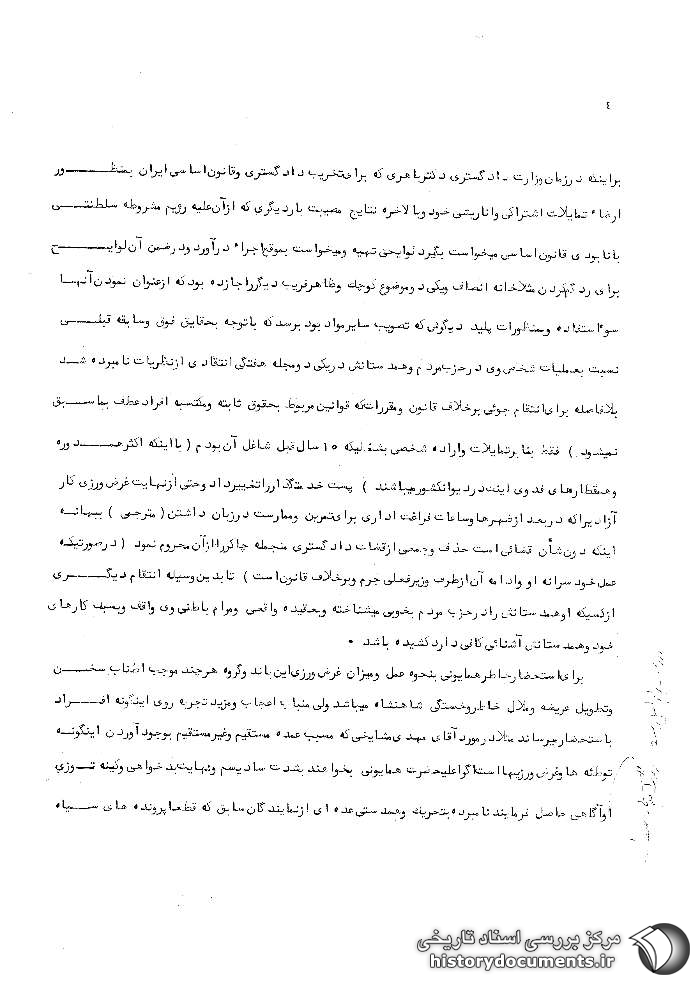 ٤
براینکه در زمان وزارت دادگستری دکتر باهری که برای تخریب دادگستری وقانون اساسی ایران بمنظور
ارضاء تمایلات اشتراکی و خود وبالاخره نتایج مصیبت باردیگری که ازآن علیه رژیم مشروطه سلطنتی
بانابودی قانون اساسی میخواست بگیرد لوایحی تهیه ومیخواست بموقع اجراء درآورد ودرضمن آن لوایح
برای رد گم کردن مثلا خانه انصاف ویکی دوموضوع کوچک وظاهرفریب دیگرراجازده بود که ازعنوان نمودن آنها
سوء استفاده ومنظورات پلید دیگونی که تصویب سایرمواد بود برسد که باتوجه بحقایق فوق وسابقه قبلی
نسبت بعملیات شخص وی درحزب مردم وهمدستانش دریکی دومجله هفتگی انتقادی ازنظریات نامبرده شد
بلافاصله برای انتقام جوئی برخلاف قانون ومقررات که قوانین مربوط بحقوق ثابته ومکتسبه افراد عطف بماسبق
نمیشود ) فقط بنابرتمایلات واراده شخصی بشغلیکه ١٥ سال قبل شاغل آن بودم ( بااینکه اکثرهمدوره
وهمقطارهای فدوی اینک در دیوانکشورمیباشند ) پست خدمتگذارراتغییرداد وحتی ازنهایت غرض ورزی کار
آزادیراکه دربعد ازظهرها وساعات فراغت اداری برای تمرین وممارست درزبان داشتن ( مترجمی ) ببهانه
اینکه دون شأن قضائی است حذف وجمعی ازقضات دادگستری منجمله چاکرراازآن محروم نمود ( درصورتیکه
عمل خود سرانه او وادامه آن ازطرف وزیرفعلی جرم وبرخلاف قانون است ) تابدین وسیله انتقام دیگری
ازکسیکه اوهمدستانش رادرحزب مردم بخوبی میشناخته وبعقیده واقعی ومرام باطنی وی واقف وبصف کارهای
خود وهمدستانش آشنائی کافی دارد کشیده باشد .
برای استحضارخاطرهمایونی بنحوه عمل ومیزان غرض ورزی این باند وگروه هرچند موجب اطناب سخن
وتطویل عریضه وملال خاطروخستگی شاهنشاه میباشد ولی منباب اعجاب ومزید تجربه روی اینگونه افراد
باستحضارمیرساند مثلا درمورد آقای مهدی مشایخی که مسبب عمده مستقیم وغیرمستقیم بوجود آوردن اینگونه
توطئه هاوغرض ورزیها است اگراعلیحضرت همایونی بخواهند بشدت سادیسم ونهایت بدخواهی وکینه توزی
اوآگاهی حاصل فرمایند نامبرده بتحریک وهمدستی عده ای ازنمایندگان سابق که قطعا پرونده های سیاه
مرکز بررسی اسناد تاریخی
historydocuments.ir